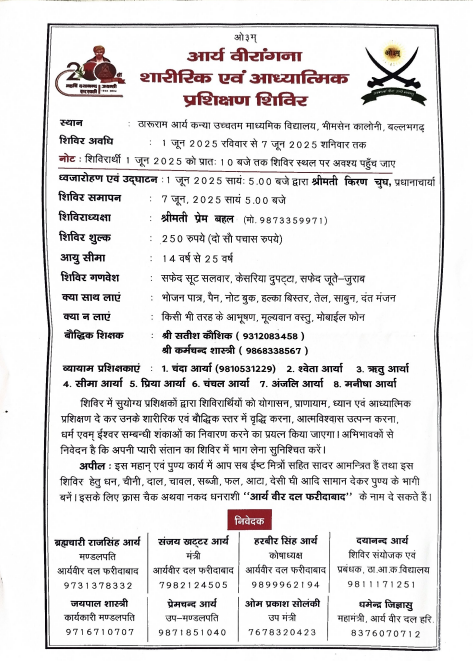 ओ३म्
आर्य वीरांगना
शारीरिक एवं आध्यात्मिक
प्रशिक्षण शिविर
स्थान : ठारूराम आर्य कन्या उच्चतम माध्यमिक विद्यालय, भीमसेन कालोनी, बल्लभगढ़
शिविर अवधि : 1 जून 2025 रविवार से 7 जून 2025 शनिवार तक
नोट : शिविरार्थी 1 जून 2025 को प्रातः 10 बजे तक शिविर स्थल पर अवश्य पहुँच जाए
ध्वजारोहण एवं उद्घाटन : 1 जून 2025 सायं 5.00 बजे द्वारा श्रीमती किरण चुघ, प्रधानाचार्या
शिविर समापन : 7 जून, 2025 सायं 5.00 बजे
शिविराध्यक्षा : श्रीमती प्रेम बहल (मो. 9873359971)
शिविर शुल्क : 250 रुपये (दो सौ पचास रुपये)
आयु सीमा : 14 वर्ष से 25 वर्ष
शिविर गणवेश : सफेद सूट सलवार, केसरिया दुपट्टा, सफेद जूते-जुराब
क्या साथ लाएं : भोजन पात्र, पैन, नोट बुक, हल्का बिस्तर, तेल, साबुन, दंत मंजन
क्या न लाएं : किसी भी तरह के आभूषण, मूल्यवान वस्तु, मोबाईल फोन
बौद्धिक शिक्षक : श्री सतीश कौशिक ( 9312083458 )
श्री कर्मचन्द शास्त्री ( 9868338567 )
व्यायाम प्रशिक्षकाएं : 1. चंदा आर्या (9810531229) 2. श्वेता आर्या 3. ऋतु आर्या
4. सीमा आर्या 5. प्रिया आर्या 6. चंचल आर्या 7. अंजलि आर्या 8. मनीषा आर्या
शिविर में सुयोग्य प्रशिक्षकों द्वारा शिविरार्थियों को योगासन, प्राणायाम, ध्यान एवं आध्यात्मिक
प्रशिक्षण दे कर उनके शारीरिक एवं बौद्धिक स्तर में वृद्धि करना, आत्मविश्वास उत्पन्न करना,
धर्म एवम् ईश्वर सम्बन्धी शंकाओं का निवारण करने का प्रयत्न किया जाएगा। अभिभावकों से
निवेदन है कि अपनी प्यारी संतान का शिविर में भाग लेना सुनिश्चित करें।
अपील : इस महान् एवं पुण्य कार्य में आप सब ईष्ट मित्रों सहित सादर आमन्त्रित हैं तथा इस
शिविर हेतु धन, चीनी, दाल, चावल, सब्जी, फल, आटा, देसी घी आदि सामान देकर पुण्य के भागी
बनें। इसके लिए क्रास चैक अथवा नकद धनराशी "आर्य वीर दल फरीदाबाद" के नाम दे सकते हैं।
निवेदक
ब्रह्मचारी राजसिंह आर्य
मण्डलपति
आर्यवीर दल फरीदाबाद
9731378332
संजय खट्टर आर्य
मंत्री
आर्यवीर दल फरीदाबाद
7982124505
हरबीर सिंह आर्य
कोषाध्यक्ष
आर्यवीर दल फरीदाबाद
9899962194
दयानन्द आर्य
शिविर संयोजक एवं
प्रबंधक, ठा.आ.क.विद्यालय
9811171251
जयपाल शास्त्री
कार्यकारी मण्डलपति
9716710707
प्रेमचन्द आर्य
उप-मण्डलपति
9871851040
ओम प्रकाश सोलंकी
उप मंत्री
7678320423
धर्मेन्द्र जिज्ञासु
महामंत्री, आर्य वीर दल हरि.
8376070712